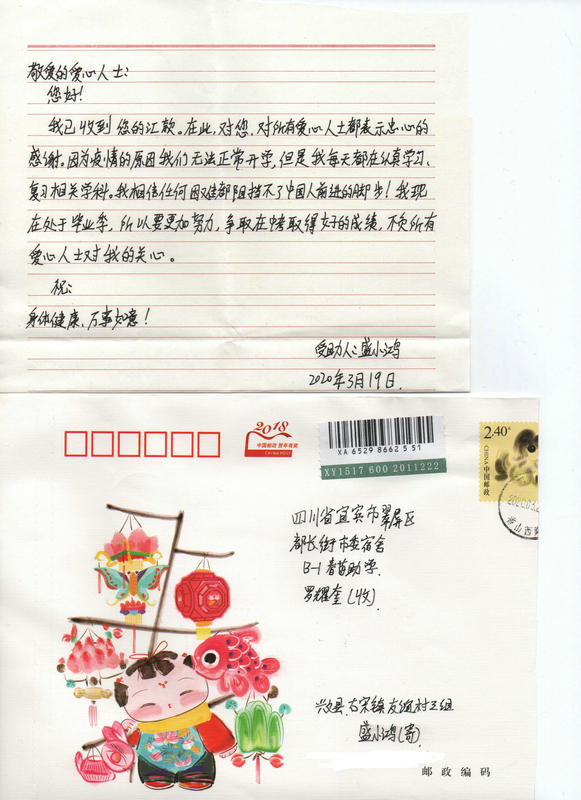 敬爱的爱心人士:
您好!
我已收到您的汇款。在此,对您,对所有爱心人士都表示忠心的
感谢。因为疫情的原因我们无法正常开学,但是我每天都在认真学习、
复习相关学科。我相信任何困难都阻挡不了中国人前进的脚步!我现
在处于毕业季,所以要更加努力,争取在中考取得好的成绩,不负所有
爱心人士对我的关心。
祝:
身体健康、万事如意!
受助人:盛小鸿
2020年3月19日.
2018
中国邮政 贺年有奖
CHINA POST
XA 6529 8662 5 51
XY1517 600 2011222
2.40元
CHINA
中国邮政
四川省宜宾市翠屏区
都长街市委宿舍
B-1 春苗助学
罗耀奎(收)
兴文县古宋镇友谊村三组
盛小鸿(寄)
邮政编码